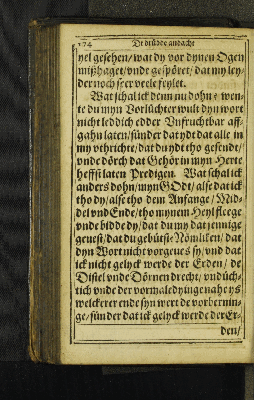 174 De drüdde andacht
vel gesehen/ wat dy vor dynen Ogen
mißhaget/ vnde gespöret/ dat my ley
der noch seer veele feylet.
Wat schal ick denn nu dohn? wen-
te du myn Vorlüchter wult dyn wort
nicht leddich edder Vnfruchtbar aff-
gahn laten/ sünder dat ydt dat alle in
my vthrichte/ dat du ydt tho gesendt/
vnde dörch dat Gehör in myn Herte
heffst laten Predigen. Wat schal ick
anders dohn/ myn GOdt/ alse dat ick
tho dy/ alse tho dem Anfange/ Mid-
del vnd Ende/ tho mynem Heyl fleege
vnde bidde dy/ dat du my dat jennige
geuest/ dat du gebütst: Nömliken/ dat
dyn Wort nicht vorgeues sy/ vnd dat
ick nicht gelyck werde der Erden/ de
Distel vnde Dörnen drecht/ vnd üch-
tich vnde der vormaledyinge nahe ys
welckerer ende syn wert de vorbernin-
ge/ sünder dat ick gelyck werde der Er-
den/